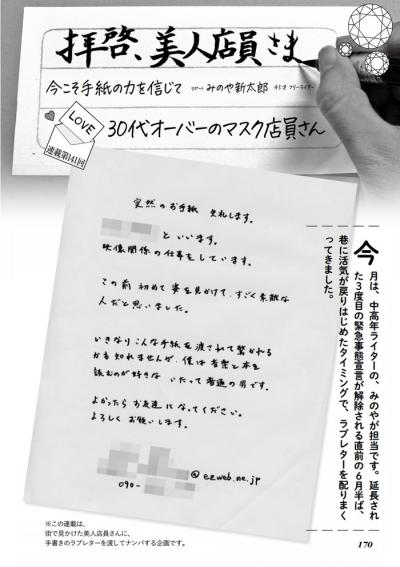 拝啓、美人店員さま
今こそ手紙の力を信じて リポート みのや新太郎 45才 フリーライター
LOVE
連載第141回
30代オーバーのマスク店員さん
突然のお手紙 失礼します。
といいます。
映像関係の仕事をしています。
この前 初めて姿を見かけて、すごく素敵な
人だと思いました。
いきなりこんな手紙を渡されて驚かれる
かも知れませんが、僕は音楽と本を
読むのが好きな いたって普通の男です。
よかったら お友達になってください。
よろしく お願いします。
@ezweb.ne.jp
090-
今月は、中高年ライターの、みのやが担当です。延長され
た3度目の緊急事態宣言が解除される直前の6月半ば、
巷に活気が戻りはじめたタイミングで、ラブレターを配りまく
ってきました。
※この連載は、
街で見かけた美人店員さんに、
手書きのラブレターを渡してナンパする企画です。
170